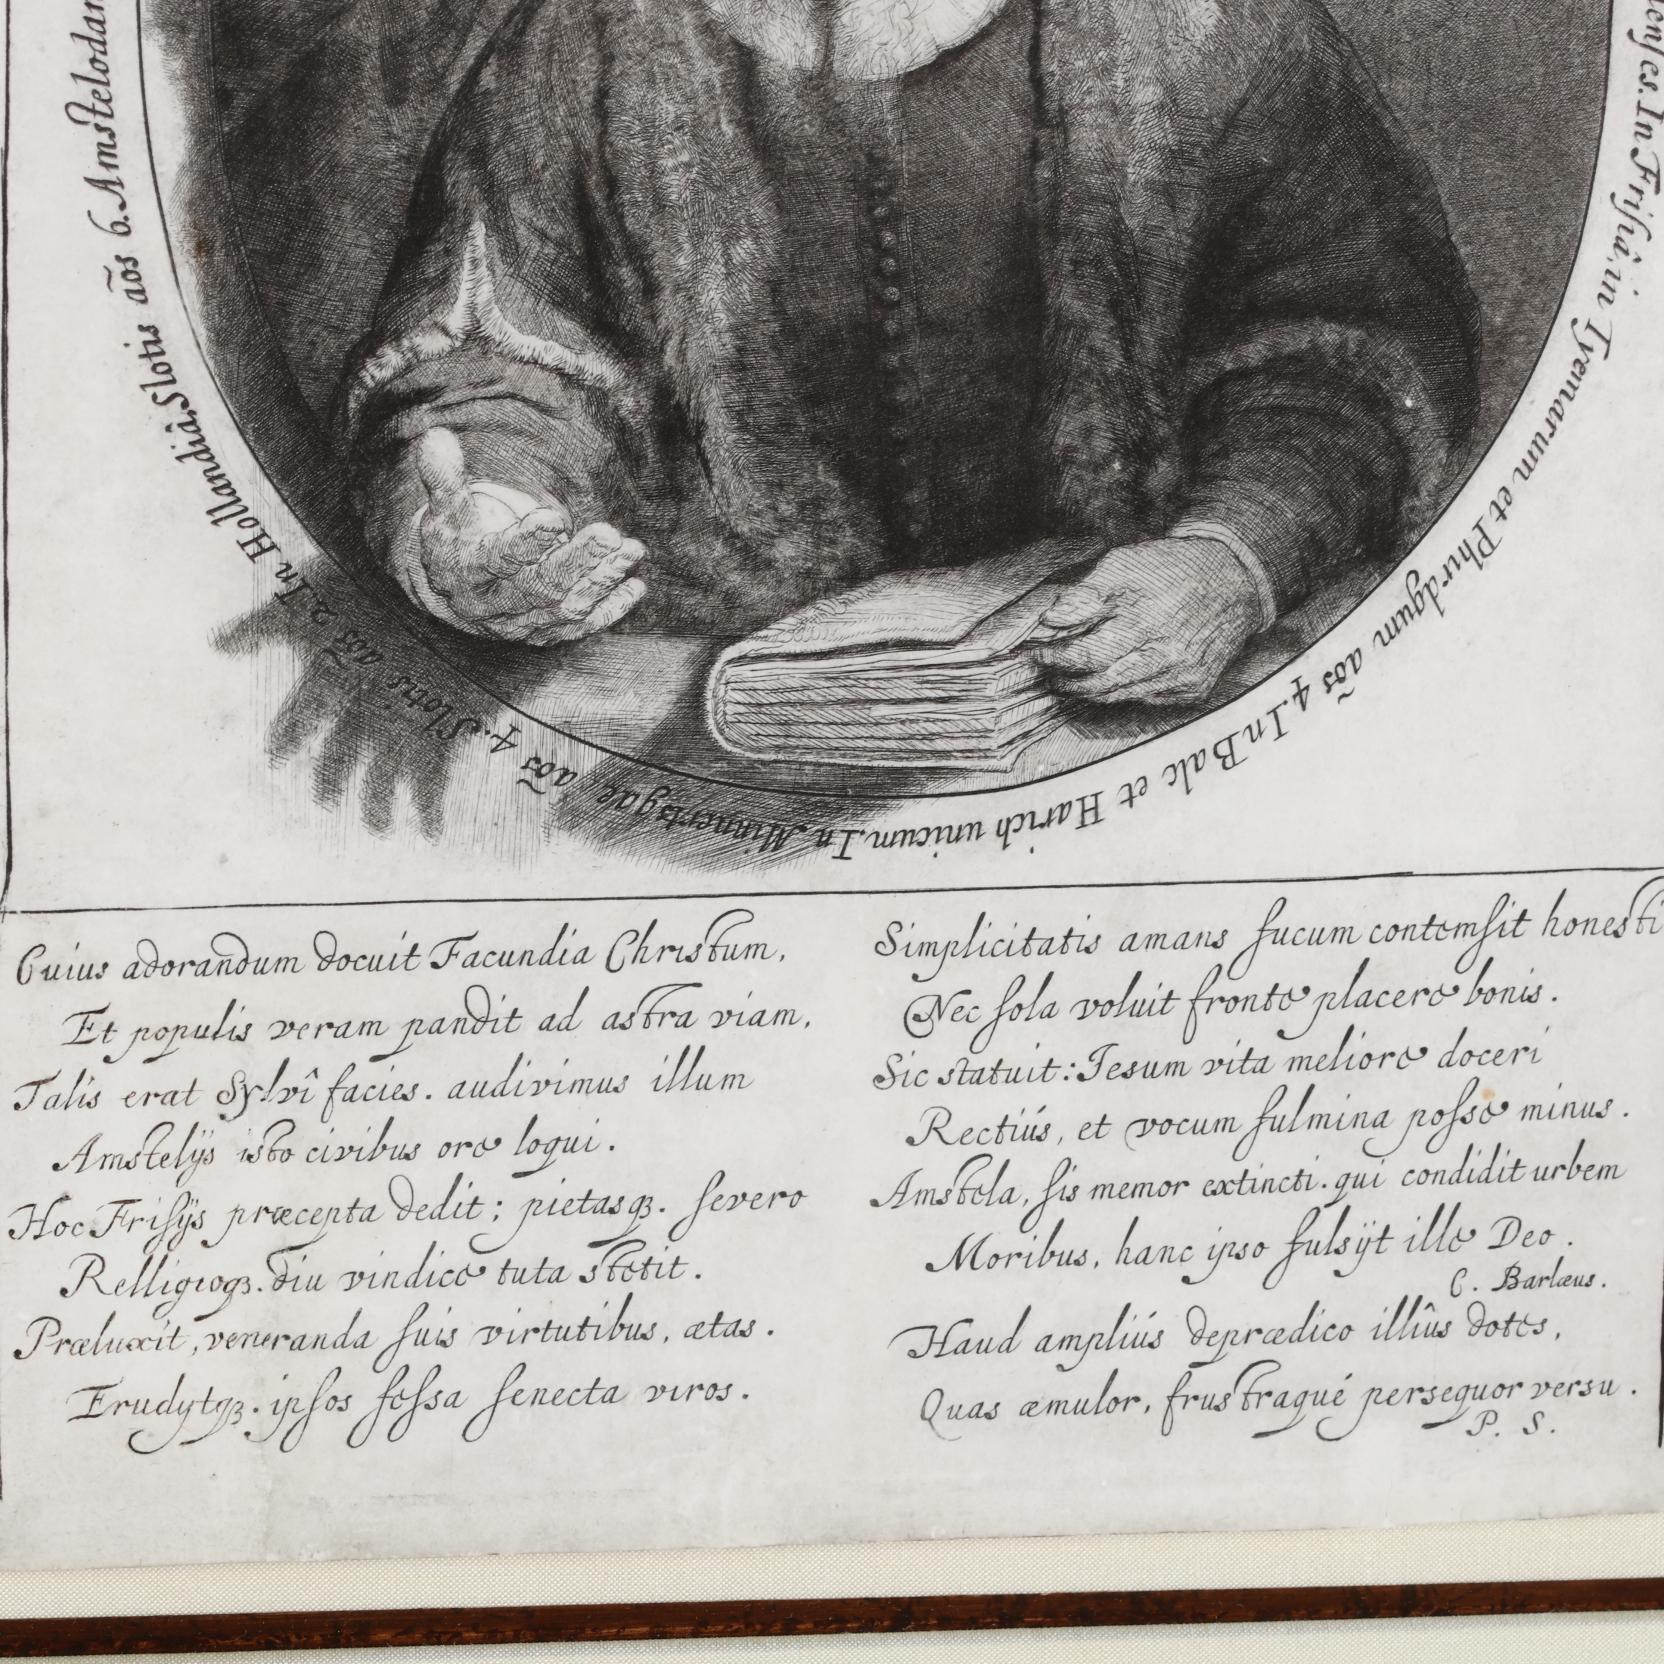 enses. In Frisiâ, in Tyemarum et Phirdgum aõs 4. In Balc et Harich unicum. In Minnertsgae aõs 4. Slotis aõs 2. In Hollandiâ, Slotis aõs 6. Amstelodam
Cuius adorandum docuit Facundia Christum,
Et populis veram pandit ad astra viam,
Talis erat Sylvî facies. audivimus illum
Amstelijs isto civibus ore loqui.
Hoc Frisijs præcepta dedit; pietasqꝫ. severo
Relligioqꝫ. diu vindice tuta stetit.
Præluxit, veneranda suis virtutibus, ætas.
Erudytqꝫ. ipsos fessa senecta viros.
Simplicitatis amans fucum contemsit honesti
Nec sola voluit fronte placere bonis.
Sic statuit: Iesum vita meliore doceri
Rectiús, et vocum fulmina posse minus.
Amstela, sis memor extincti. qui condidit urbem
Moribus, hanc ipso fulsijt ille Deo.
C. Barlæus.
Haud ampliús deprædico illîus dotes,
Quas æmulor, frustraqué persequor versu.
P. S.